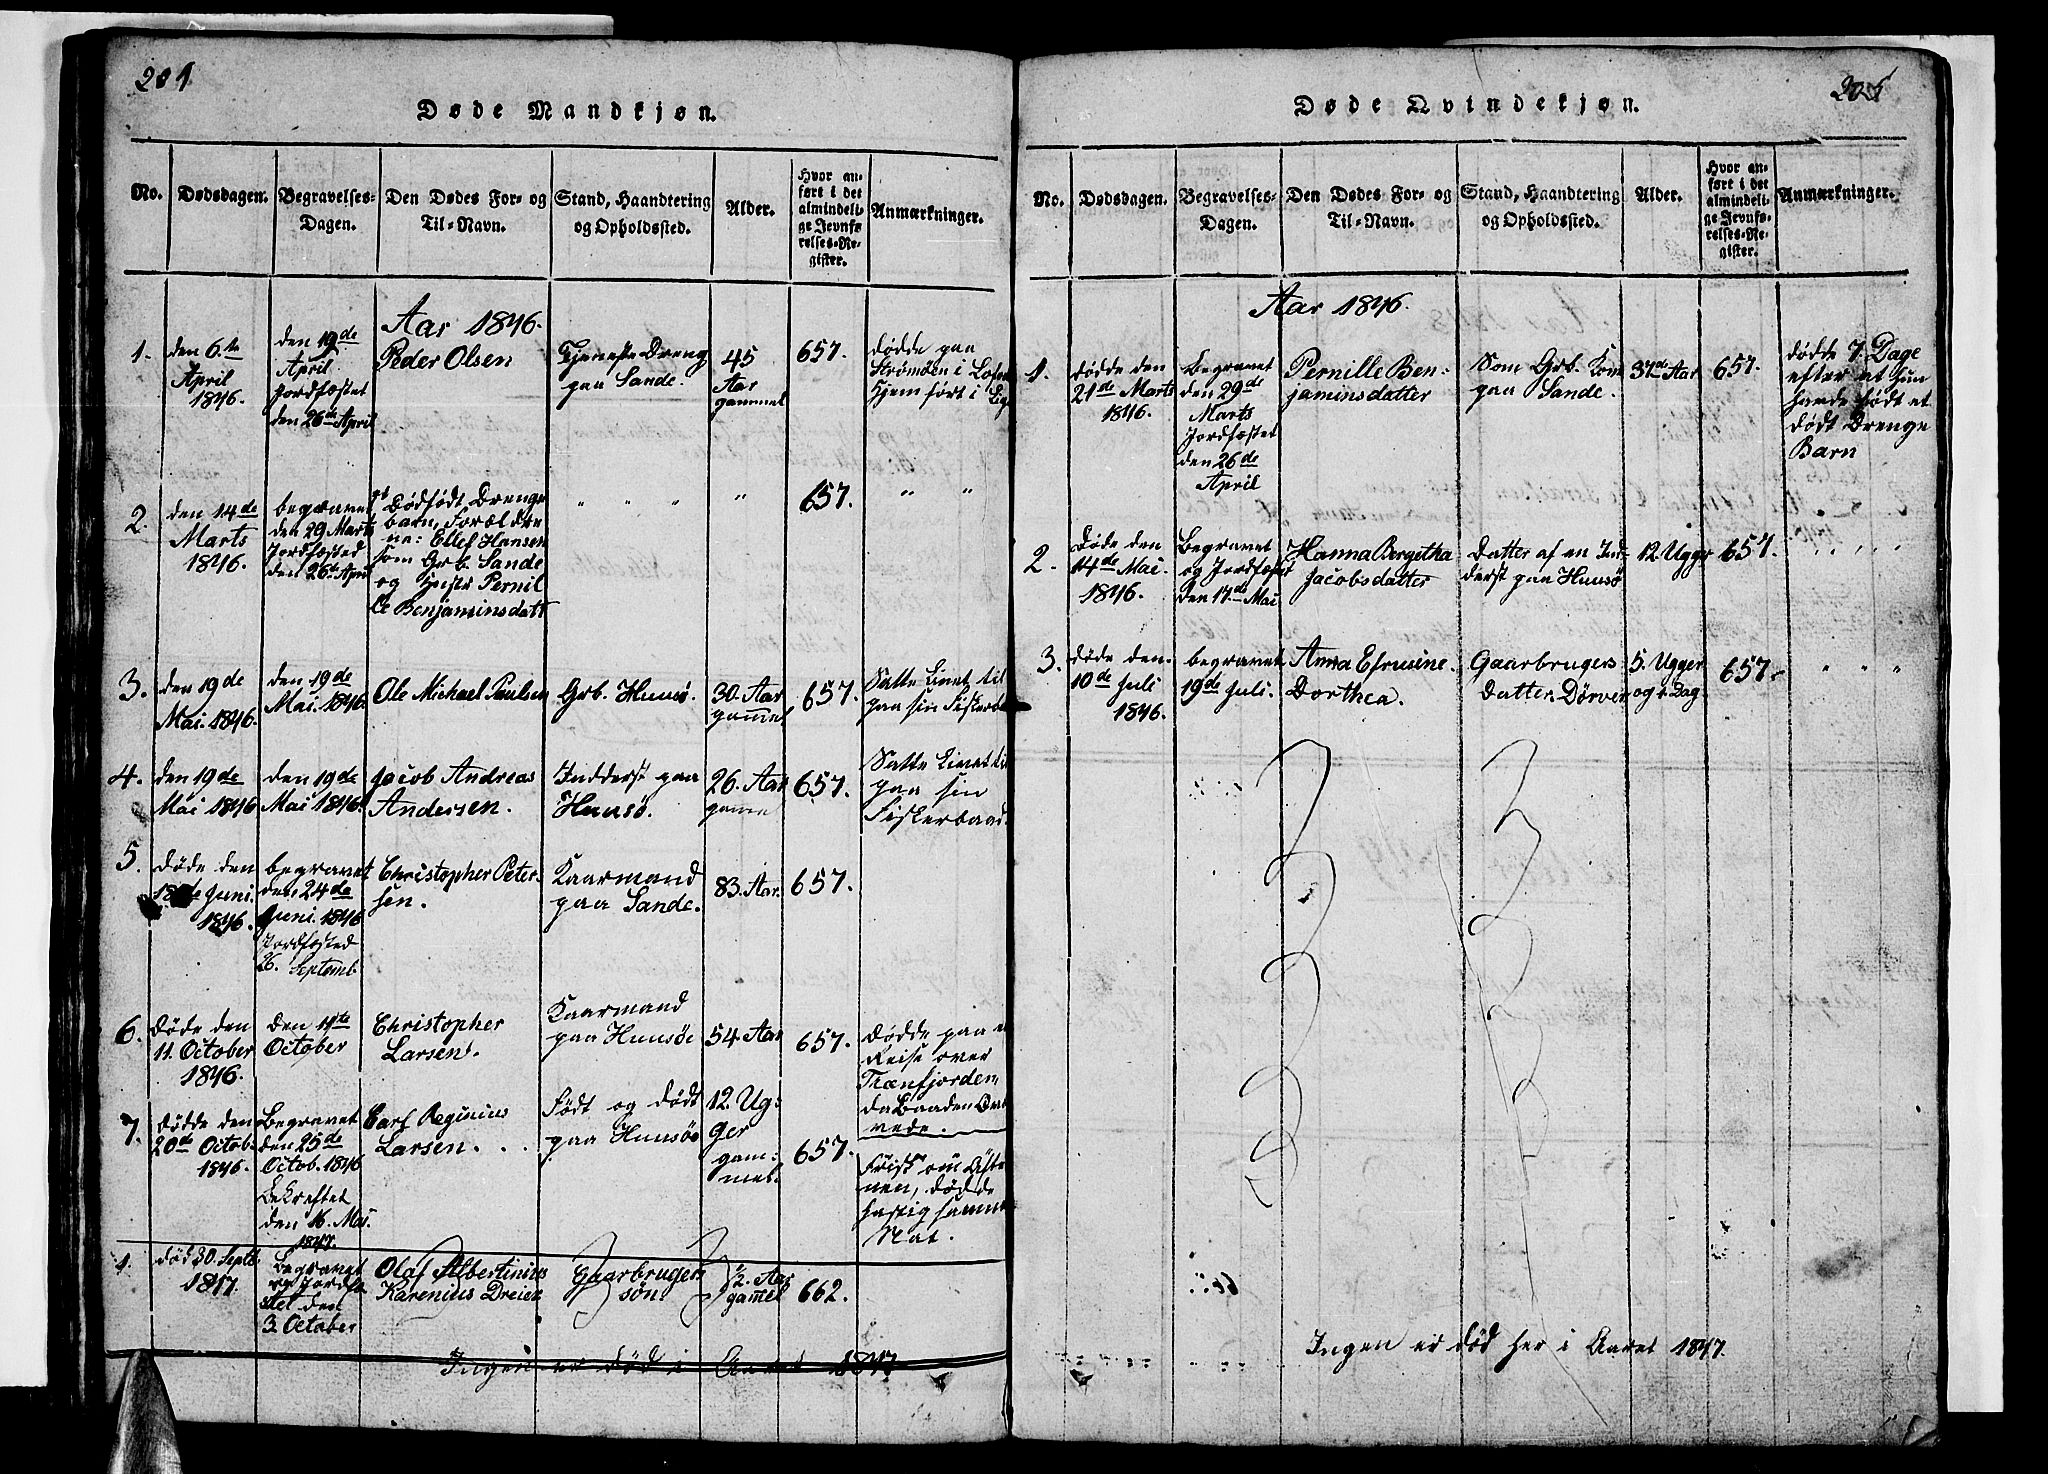 201
Døde Mandkjøn.
No.
Dødsdagen.
Begravelses-
Dagen.
Den Dødes For- og
Til-Navn.
Stand, Haandtering
og Opholdssted.
Alder.
Hvor an-
ført i det
almindeli-
ge Jevnfø-
relses-Re-
gister.
Anmærkninger.
Aar 1846.
1.
den 6.te
April
1846.
den 19de
April
Jordfæstet
den 26de April
Peder Olsen
Tjeneste Dreng
paa Sande.
45
Aar
gammel
657.
dødde paa
Strømden i
Hjemført i
2.
den 14de
Marts
1846.
begravet
den 29 Marts
Jordfæsted
den 26de April
et Dødfødt Drenge
barn, Forældre
ne: Ellef Hansen
som Grb. Sande
og Hustr Pernil
le Benjaminsdatt
" " "
"
657.
" "
3.
den 19de
Mai. 1846.
den 19de
Mai. 1846.
Ole Michael Paulsen
Grb. Huusø.
30. Aar
gamme
657.
Satte Livet til
paa sin Fiskerba
4.
den 19de
Mai 1846
den 19de
Mai 1846.
Jacob Andreas
Andersen.
Inderst paa
Huusø.
26. Aar
gamme
657.
Satte Livet til
paa sin
Fiskerbaad.
5.
døde den
18de Juni.
1846.
begravet
den 24de
Juni. 1846
Jordfæsted
26. Septemb.
Christopher Peter-
sen.
Kaarmand
paa Sande.
83. Aar.
657.
6.
døde den
11. October
1846.
den 11te
October
Christopher
Larsen.
Kaarmand
paa Huusøe
54. Aar
657.
dødde paa en
Reise over
Trænfjorden
da Baaden
vede.
7.
dødde den
20de Octob.
1846.
Begravet
den 25de
Octob. 1846
Bekræftet
den 16. Mai.
1847.
Carl Reginius
Larsen.
Født og dødt
paa Huusøe
12. Ug-
ger
gam-
mel.
657.
Frisk om Afte
nen, dødde
hastig samme
Nat.
1.
død 30. Septb.
1847.
Begravet
og Jordfæ
stet den
3. October
Olaf Albertinius
Karenius Dreier
Gaarbruger
søn
1/2. Aar
gamel
662.
Ingen er død i Aaret 1847
205
Døde Qvindekjøn.
No.
Dødsdagen.
Begravelses-
Dagen.
Den Dødes For- og
Til-Navn.
Stand, Haandtering
og Opholdssted.
Alder.
Hvor an-
ført i det
almindeli-
ge Jevnfø-
relses-Re-
gister.
Anmærkninger.
Aar 1846.
1.
dødde den
21de Marts
1846.
Begravet
den 29de
Marts
Jordfæsted
den 26de
April
Pernille Ben-
jaminsdatter
Som Grb. Kone
paa Sande.
37de Aar
657.
dødde 7. Dage
efter at hun
havde født et
dødt Drenge
Barn
2.
Døde den
14de Mai.
1846.
Begravet
og Jordfæstet
den 17de Mai
Hanna Bergitha
Jacobsdatter
Datter af en In-
derst paa Huusø
12. Ugger
657.
" " " "
3.
døde den
10de Juli
1846.
begravet
19de Juli.
Anna Efrusine
Dorthea.
Gaarbrugers
Datter. Dørver
5. Ugger
og 2. Dag
657.
" " "
Ingen er død her i Aaret 1847.